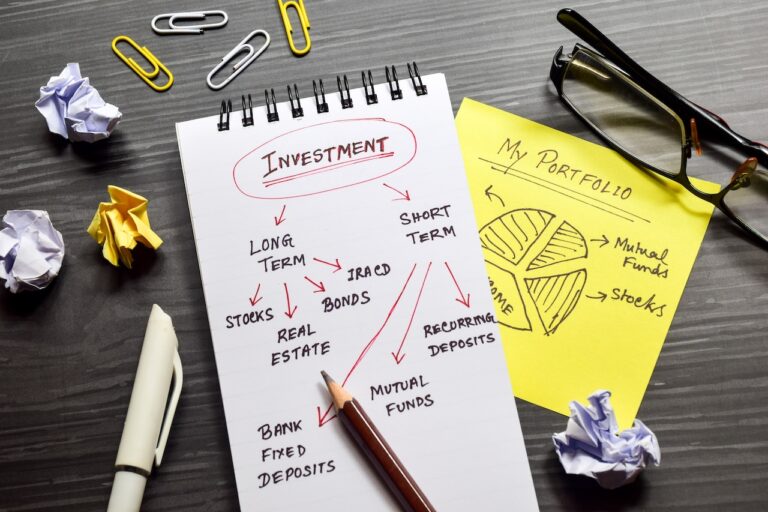 INVESTMENT
LONG
TERM
SHORT
TERM
STOCKS
REAL
ESTATE
BONDS
IRACD
BANK
FIXED
DEPOSITS
MUTUAL
FUNDS
RECURRING
DEPOSITS
My PORTFOLIO
Mutual
Funds
Stocks